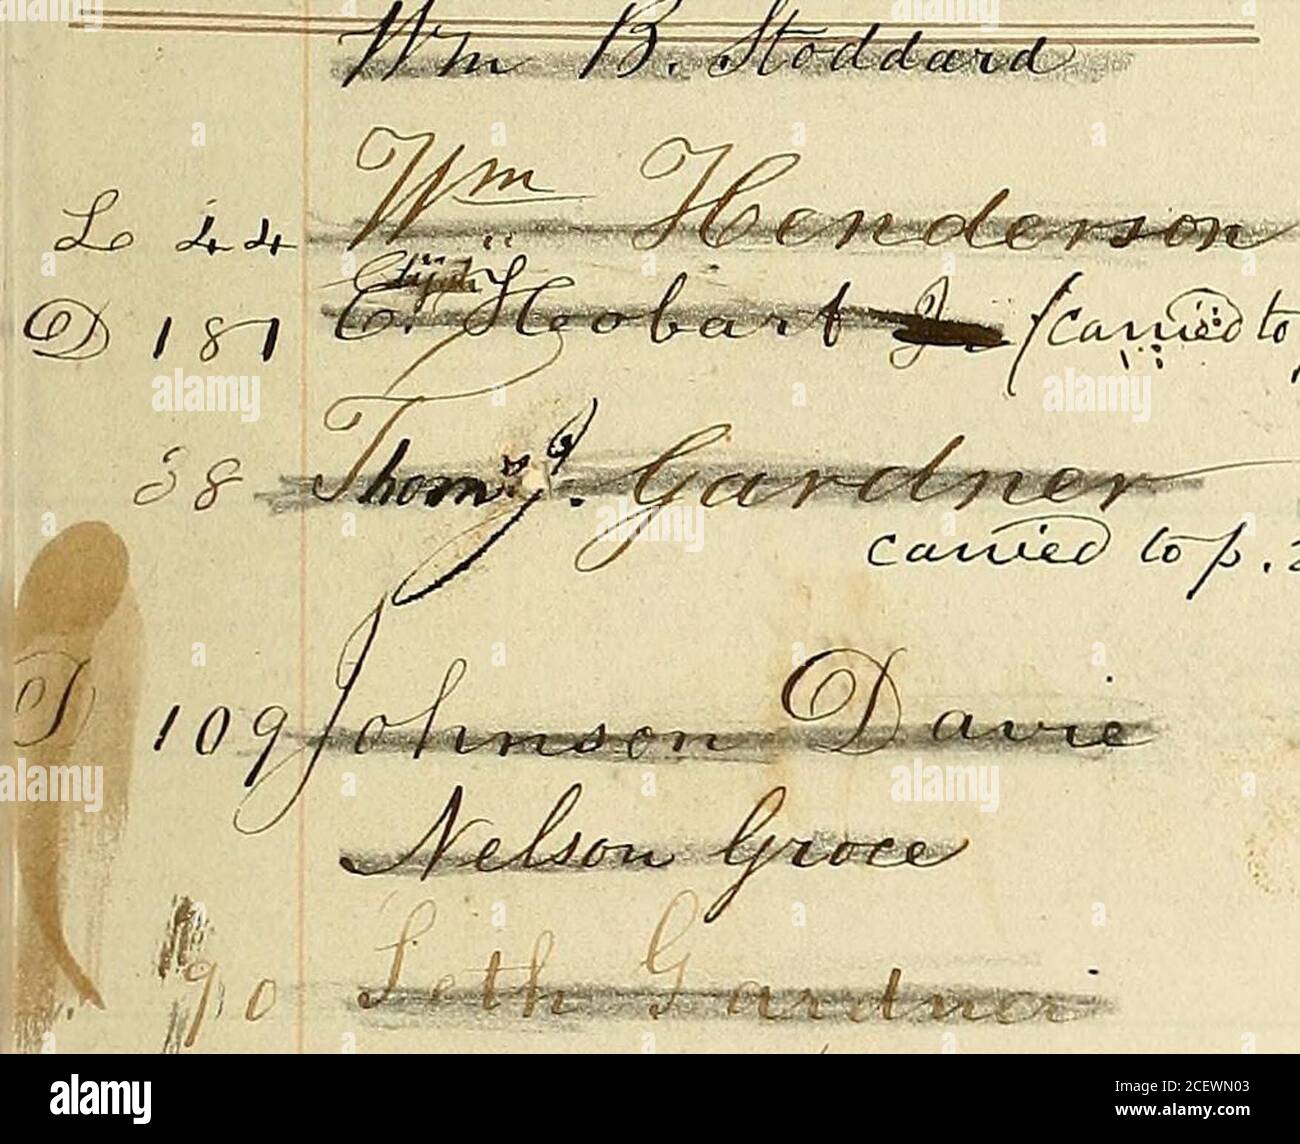 Wm B. Stoddard
L 44 Wm Henderson
Elijah
D 181 E. Hobart Jr (carried to
38 Thomas J. Gardner
carried to p. 2
D 109 Johnson Davie
Nelson Groce
90 Seth Gardner
alamy
Image ID: 2CEWN03
www.alamy.com